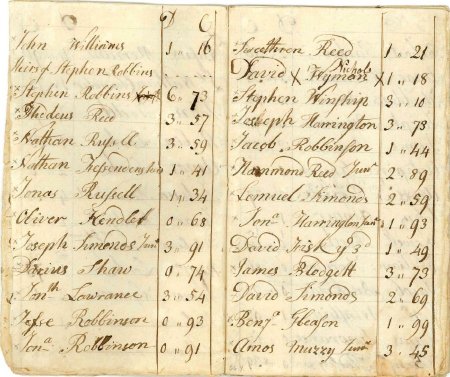 $ C
John Williams 1 " 16
Heirs of Stephen Robbins
Stephen Robbins 6 " 73
Thedeus Reed 3 " 57
Nathan Rufsell 3 " 59
Nathan Fefsendens 1 " 41
Jonas Rufsell 1 " 34
Oliver Kendle 0 " 68
Joseph Simonds Junr 3 " 91
Darius Shaw 0 " 74
Jonth Lowrance 3 " 54
Jefse Robbinson 0 " 93
Jona Robbinson 0 " 91
Sweethren Reed 1 " 21
Nichols
David X Hymon X 1 " 18
Stephen Winship 3 " 10
Joseph Harrington 3 " 73
Jacob Robbinson 1 " 44
Hammond Reed Junr 2 " 89
Lemuel Simonds 2 " 59
Jona Harrington Junr 1 " 93
David Fisk ye 3d 1 " 49
James Blodgett 3 " 73
David Simonds 2 " 69
Benja Gleason 1 " 99
Amos Muzzy Junr 3 " 45